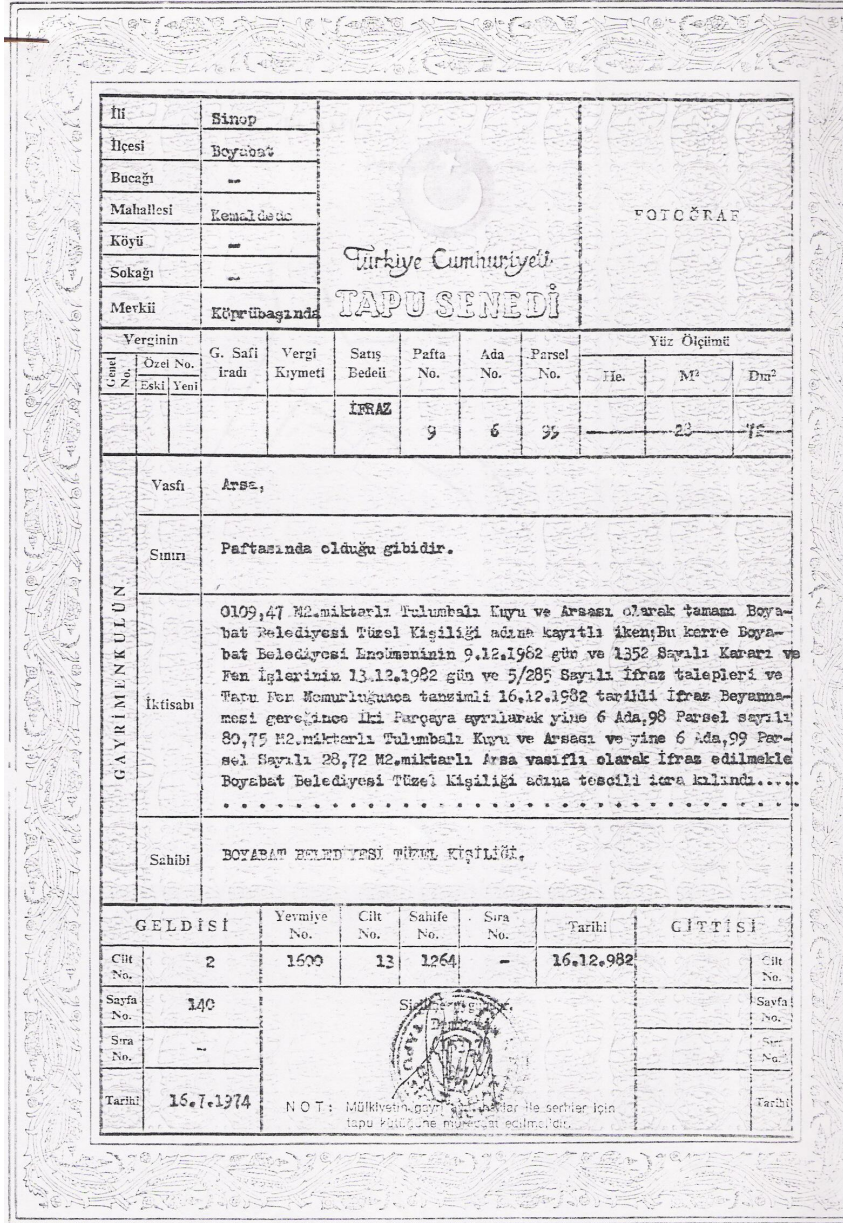 İli Sinop
İlçesi Boyabat
Bucağı -
Mahallesi Kemaldede
Köyü -
Sokağı -
Mevkii Köprübaşında
Türkiye Cumhuriyeti
TAPU SENEDİ
FOTOĞRAF
Verginin
Genel No.
Özel No.
Eski Yeni
G. Safi iradı
Vergi Kıymeti
Satış Bedeli
Pafta No.
Ada No.
Parsel No.
Yüz Ölçümü
He. M² Dm²
İFRAZ
9 6 99 28 72
GAYRİMENKULÜN
Vasfı Arsa,
Sınırı Paftasında olduğu gibidir.
İktisabı
0109,47 M2.miktarlı Tulumbalı Kuyu ve Arsası olarak tamamı Boya-
bat Belediyesi Tüzel Kişiliği adına kayıtlı iken;Bu kerre Boya-
bat Belediyesi Encümeninin 9.12.1982 gün ve 1352 Sayılı Kararı ve
Fen İşlerinin 13.12.1982 gün ve 5/285 Sayılı İfraz talepleri ve
Tapu Fen Memurluğunca tanzimli 16.12.1982 tarihli İfraz Beyanna-
mesi gereğince İki Parçaya ayrılarak yine 6 Ada,98 Parsel sayılı
80,75 M2.miktarlı Tulumbalı Kuyu ve Arsası ve yine 6 Ada,99 Par-
sel Sayılı 28,72 M2.miktarlı Arsa vasıflı olarak İfraz edilmekle
Boyabat Belediyesi Tüzel Kişiliği adına tescili icra kılındı.....
Sahibi BOYABAT BELEDİYESİ TÜZEL KİŞİLİĞİ.
GELDİSİ
Yevmiye No.
Cilt No.
Sahife No.
Sıra No.
Tarihi
GİTTİSİ
Cilt No. 2 1600 13 1264 - 16.12.982 Cilt No.
Sayfa No. 140 Sayfa No.
Sıra No. - Sıra No.
Tarihi 16.7.1974 Tarihi
NOT: Mülkiyetin gayri ile şerhler için
tapu kütüğüne müracaat edilmelidir.